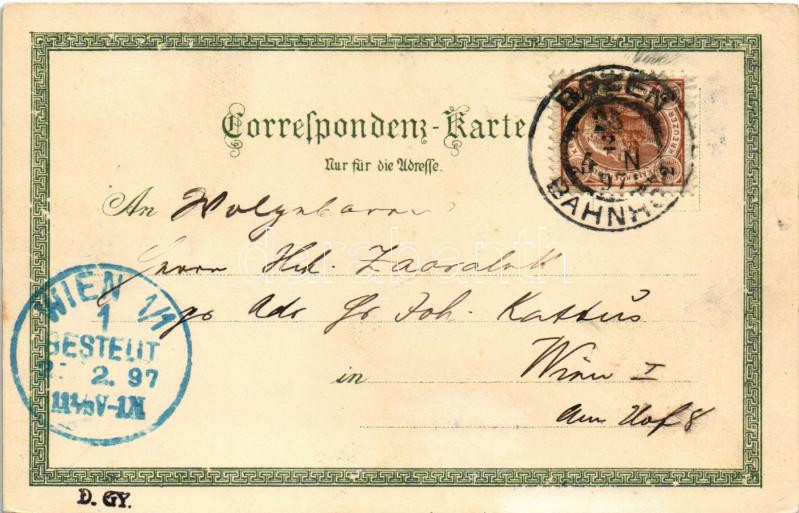 Correspondenz-Karte
Nur für die Adresse.
BOZEN
2
N
97
BAHNHOF
An Wolgeboren
Herrn
pr Adr Gr Joh. Kattus
in Wien I
Am Hof 8
WIEN 1/1
1
BESTELLT
2. 97
11½V-1N
D. GY.
darabanth